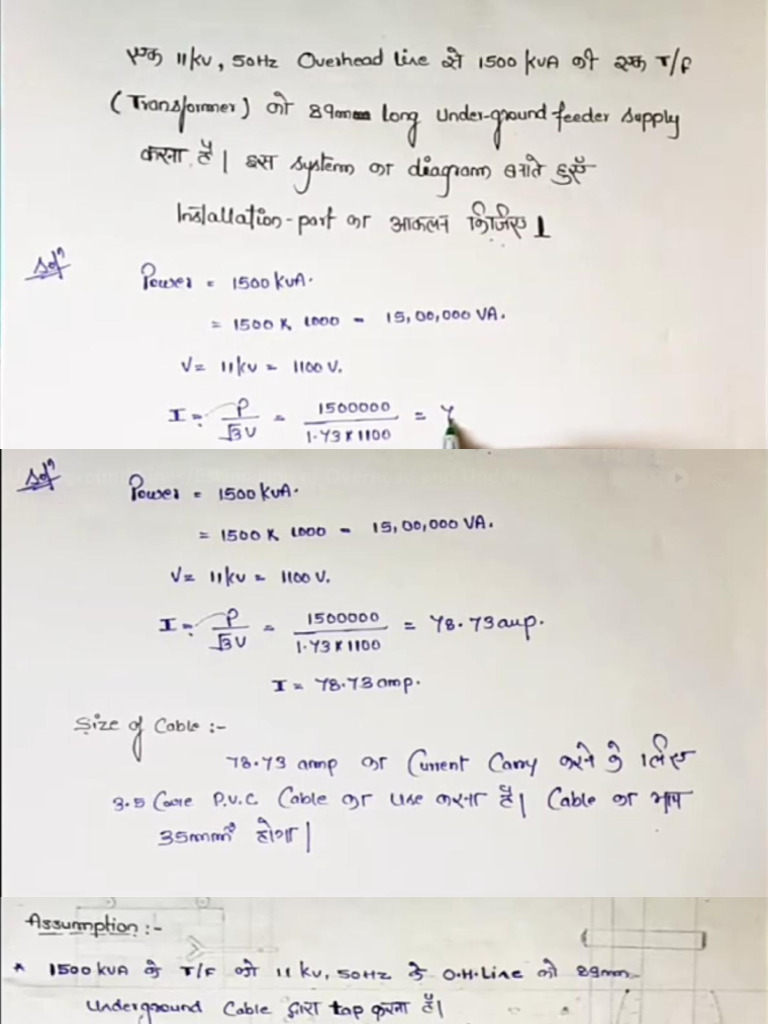 एक 11kv, 50Hz Overhead Line से 1500 kVA की एक T/F
(Transformer) को 89m long Under-ground feeder supply
करना है| इस system का diagram बनाते हुएँ
Installation-part का आकलन किजिए |
Solⁿ
Power = 1500 kVA.
= 1500 x 1000 = 15,00,000 VA.
V = 11kv = 1100 V.
I = P/√3V = 1500000/1.73x1100 =
Solⁿ
Power = 1500 kVA.
= 1500 x 1000 = 15,00,000 VA.
V = 11kv = 1100 V.
I = P/√3V = 1500000/1.73x1100 = 78.73 amp.
I = 78.73 amp.
Size of Cable :-
78.73 amp का Current Carry करने के लिए
3.5 Core P.V.C Cable का use करना है| Cable का माप
35mm² होगा|
Assumption :-
* 1500 kVA के T/F को 11 kv, 50Hz के O.H.Line को 89m
Underground Cable द्वारा tap करना है|